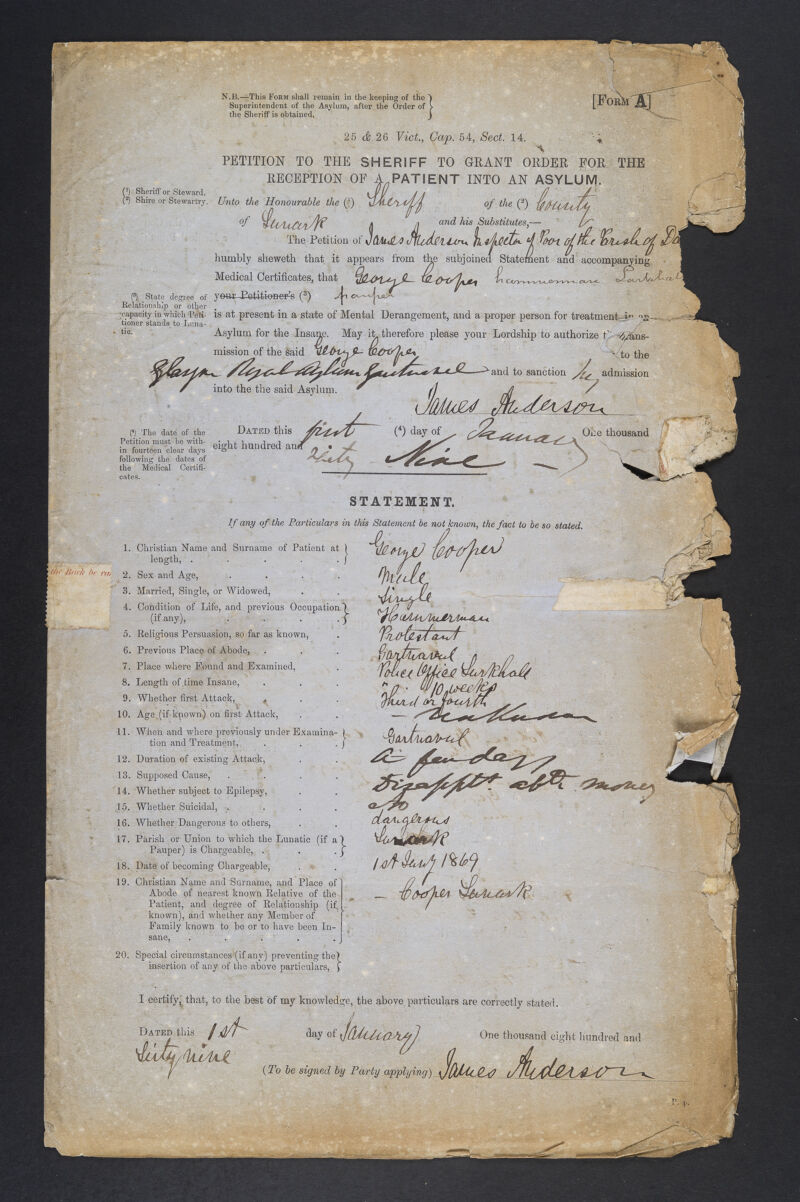 N.B.—This Form shall remain in the keeping of the
Superintendent of the Asylum, after the Order of
the Sheriff is obtained.
[Form A]
25 & 26 Vict., Cap. 54, Sect. 14.
PETITION TO THE SHERIFF TO GRANT ORDER FOR THE
RECEPTION OF A PATIENT INTO AN ASYLUM.
(1) Sheriff or Steward.
(2) Shire or Stewartry.
Unto the Honourable the (1) Sheriff of the (2) County
of Lanark and his Substitutes,—
The Petition of James Anderson Inspector of Poor of the Parish of Da
humbly sheweth that it appears from the subjoined Statement and accompanying
Medical Certificates, that George Cooper hammerman Larkhall
(3) State degree of
Relationship or other
capacity in which Peti-
tioner stands to Luna-
tic.
your Petitioner's (3) pauper
is at present in a state of Mental Derangement, and a proper person for treatment in an
Asylum for the Insane. May it therefore please your Lordship to authorize t trans-
mission of the said George Cooper to the
Glasgow Royal Asylum Gartnavel and to sanction his admission
into the the said Asylum.
James Anderson
(4) The date of the
Petition must be with-
in fourteen clear days
following the dates of
the Medical Certifi-
cates.
Dated this first (4) day of January One thousand
eight hundred and Sixty Nine
STATEMENT.
If any of the Particulars in this Statement be not known, the fact to be so stated.
1. Christian Name and Surname of Patient at
length, George Cooper
2. Sex and Age, Male
3. Married, Single, or Widowed, Single
4. Condition of Life, and previous Occupation
(if any), Hammerman
5. Religious Persuasion, so far as known, Protestant
6. Previous Place of Abode, Gartnavel
7. Place where Found and Examined, Police Office Larkhall
8. Length of time Insane, 10 weeks
9. Whether first Attack, Third or fourth
10. Age (if known) on first Attack, – Unknown
11. When and where previously under Examina-
tion and Treatment, Gartnavel
12. Duration of existing Attack, A few days
13. Supposed Cause, Disapptt. abt. money
14. Whether subject to Epilepsy, no
15. Whether Suicidal,
16. Whether Dangerous to others, dangerous
17. Parish or Union to which the Lunatic (if a
Pauper) is Chargeable, Lanark
18. Date of becoming Chargeable, 1st Jany 1869
19. Christian Name and Surname, and Place of
Abode of nearest known Relative of the
Patient, and degree of Relationship (if
known), and whether any Member of
Family known to be or to have been In-
sane, – Cooper Lanark
20. Special circumstances (if any) preventing the
insertion of any of the above particulars,
I certify, that, to the best of my knowledge, the above particulars are correctly stated.
Dated this 1st day of January One thousand eight hundred and
Sixty nine
(To be signed by Party applying) James Anderson